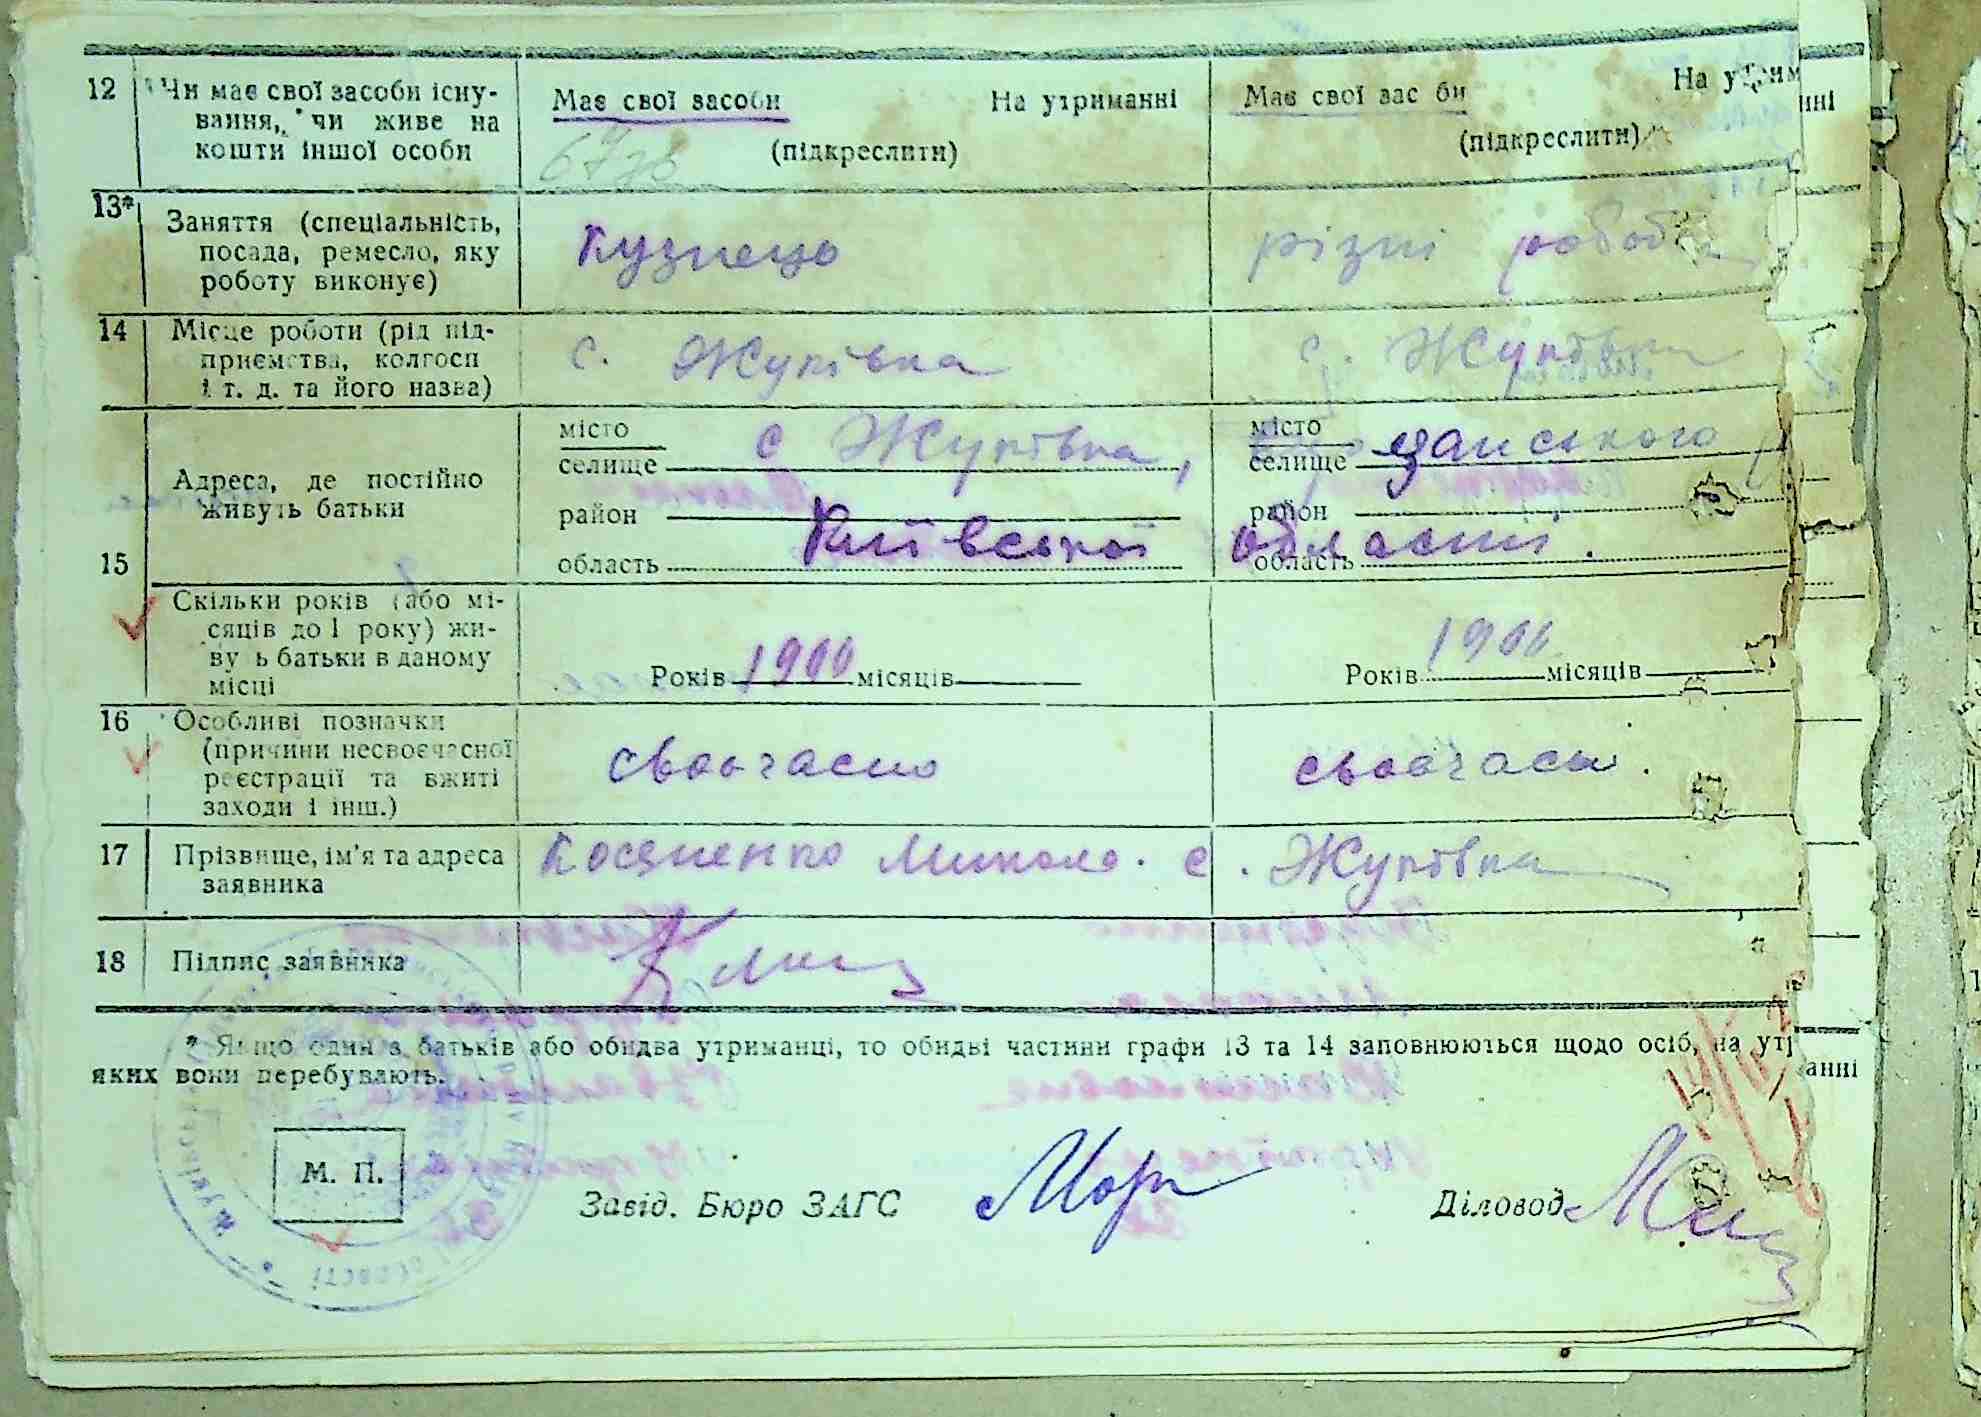 12 Чи має свої засоби існу-
вання, чи живе на
кошти іншої особи
Має свої засоби На утриманні
(підкреслити)
Має свої зас би На утрим
(підкреслити)
нні
13* Заняття (спеціальність,
посада, ремесло, яку
роботу виконує)
Кузнець
різні роботи
14 Місце роботи (рід під-
приємства, колгосп
і т. д. та його назва)
с. Жуківка
с. Жуківка
15 Адреса, де постійно
живуть батьки
місто
селище с Жуківка,
район
область Київської
місто
селище
район
область області.
Скільки років (або мі-
сяців до 1 року) жи-
ву ь батьки в даному
місці
Років 1900 місяців
Років 1900 місяців
16 Особливі позначки
(причини несвоєчасної
реєстрації та вжиті
заходи і інш.)
своочасно
своочасн.
17 Прізвище, ім'я та адреса
заявника
Микола. с. Жуківка
18 Підпис заявника
* Якщо один з батьків або обидва утриманці, то обидві частини графи 13 та 14 заповнюються щодо осіб, на утр
анні
яких вони перебувають.
М. П.
Завід. Бюро ЗАГС
Діловод